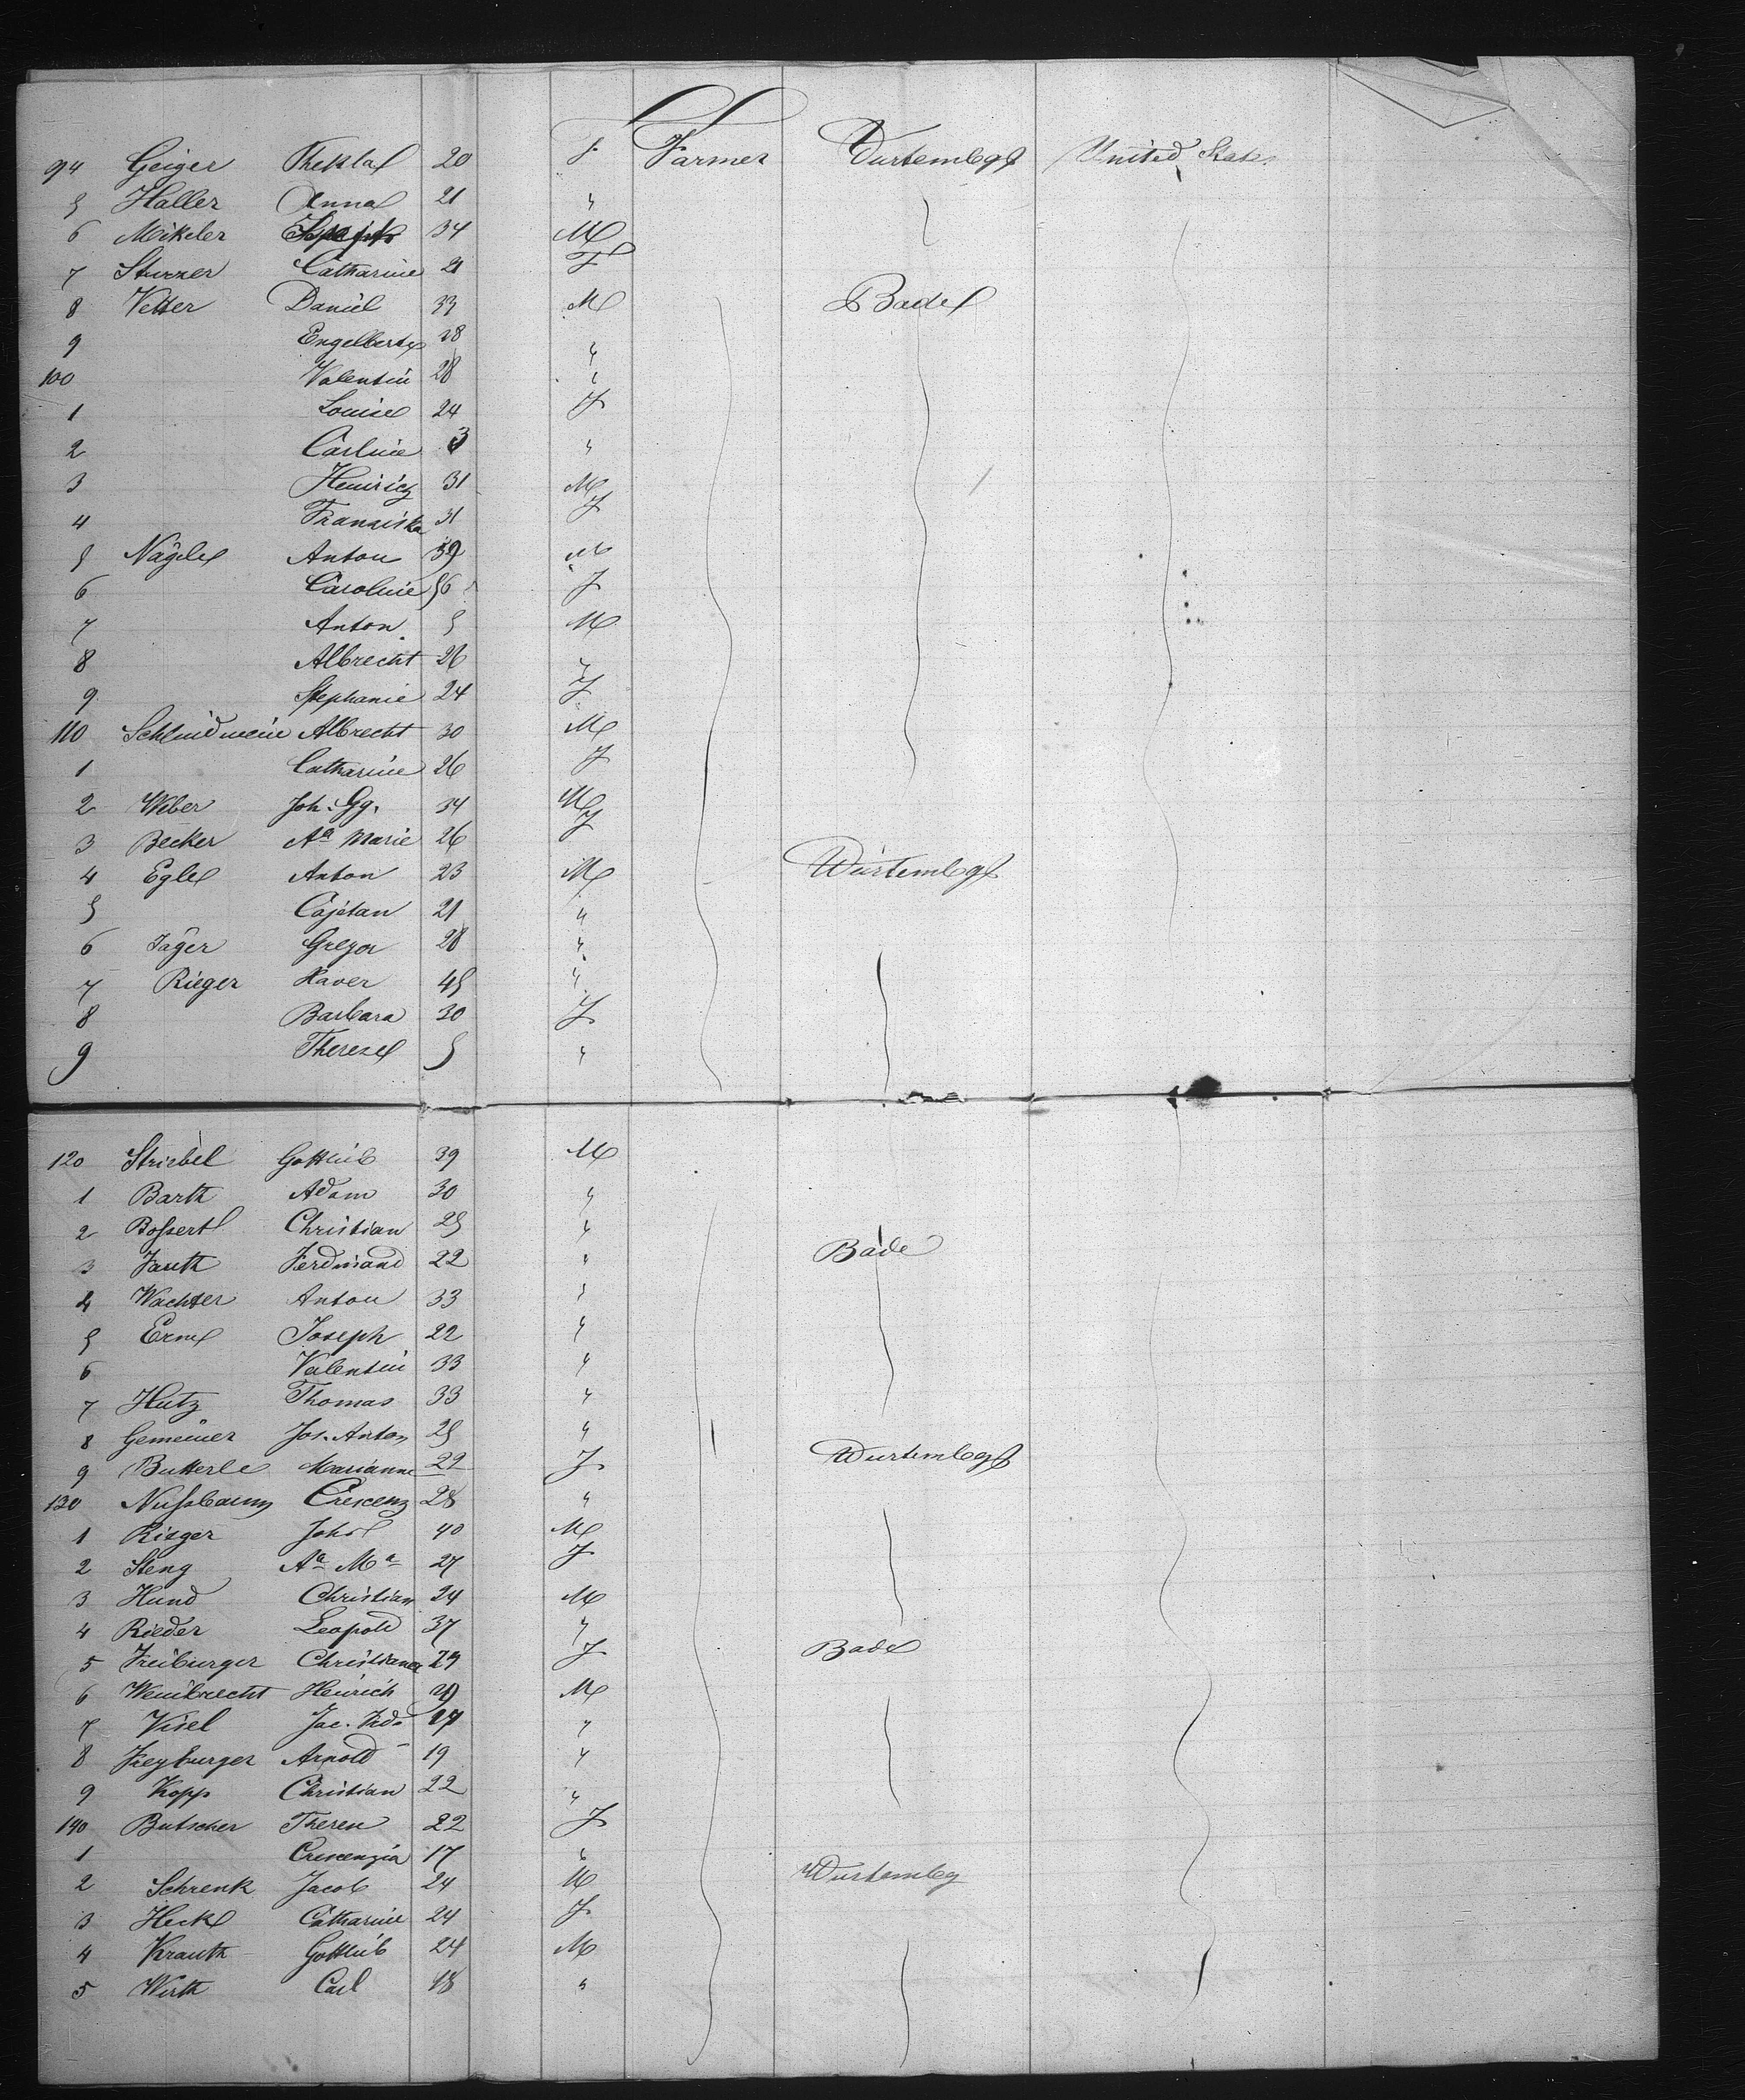 94 Geiger Thekla 20 F Farmer Würtembg United States
5 Haller Anna 21 "
6 Mikeler 34 M
7 Sturzer Catharine 21 F
8 Vetter Daniel 33 M Bade
9 Engelbert 28 "
100 Valentin 28 "
1 Louise 24 F
2 Carline 3 "
3 Heinrich 31 M
4 Franziska 31 F
5 Nägele Anton 39 M
6 Caroline 56 F
7 Anton 5 M
8 Albrecht 26 "
9 Stephanie 24 F
110 Albrecht 30 M
1 Catharine 26 F
2 Weber Joh. Gg. 34 M
3 Becker Aa Marie 26 F
4 Egle Anton 23 M Würtembg
5 Cajetan 21 "
6 Jäger Gregor 28 "
7 Rieger Xaver 45 "
8 Barbara 30 F
9 Therese 5 "
120 Striebel Gottlieb 39 M
1 Barth Adam 30 "
2 Boſsert Christian 25 "
3 Jauth Ferdinand 22 " Bade
4 Wachter Anton 33 "
5 Erne Joseph 22 "
6 Valentin 33 "
7 Hutz Thomas 33 "
8 Gemeiner Jos. Anton 25 "
9 Butterle Marianne 22 F Wurtembg
130 Nuſsbaum Crescenz 28 "
1 Rieger Joh 40 M
2 Steng Aa Ma 27 F
3 Hund Christian 24 M
4 Rieder Leopold 37 "
5 Freiburger Christiana 29 F Bade
6 Weinbrecht Heinrich 29 M
7 Visel Jac. Frd. 17 "
8 Freyburger Arnold 19 "
9 Kopp Christian 22 "
140 Butscher Therese 22 F
1 Crescenzia 17 "
2 Schrenk Jacob 24 M Wurtembg
3 Heck Catharine 24 F
4 Krauth Gottlieb 24 M
5 Wirth Carl 48 "